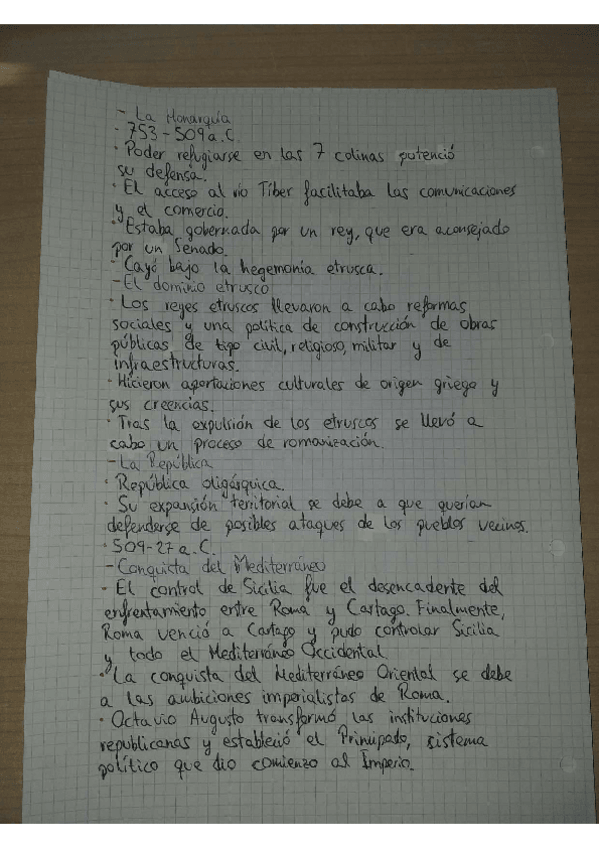 - La Monarquía
· 753-509 a.C.
· Poder refugiarse en las 7 colinas potenció
su defensa.
· El acceso al río Tíber facilitaba las comunicaciones
y el comercio.
· Estaba gobernada por un rey, que era aconsejado
por un Senado.
· Cayó bajo la hegemonía etrusca.
- El dominio etrusco
· Los reyes etruscos llevaron a cabo reformas
sociales y una política de construcción de obras
públicas de tipo civil, religioso, militar y de
infraestructuras.
· Hicieron aportaciones culturales de origen griego y
sus creencias.
· Tras la expulsión de los etruscos se llevó a
cabo un proceso de romanización.
- La República
· República oligárquica.
· Su expansión territorial se debe a que querían
defenderse de posibles ataques de los pueblos vecinos.
· 509-27 a.C.
- Conquista del Mediterráneo
· El control de Sicilia fue el desencadente del
enfrentamiento entre Roma y Cartago. Finalmente,
Roma venció a Cartago y pudo controlar Sicilia
y todo el Mediterráneo Occidental.
· La conquista del Mediterráneo Oriental se debe
a las ambiciones imperialistas de Roma.
· Octavio Augusto transformó las instituciones
republicanas y estableció el Principado, sistema
político que dio comienzo al Imperio.